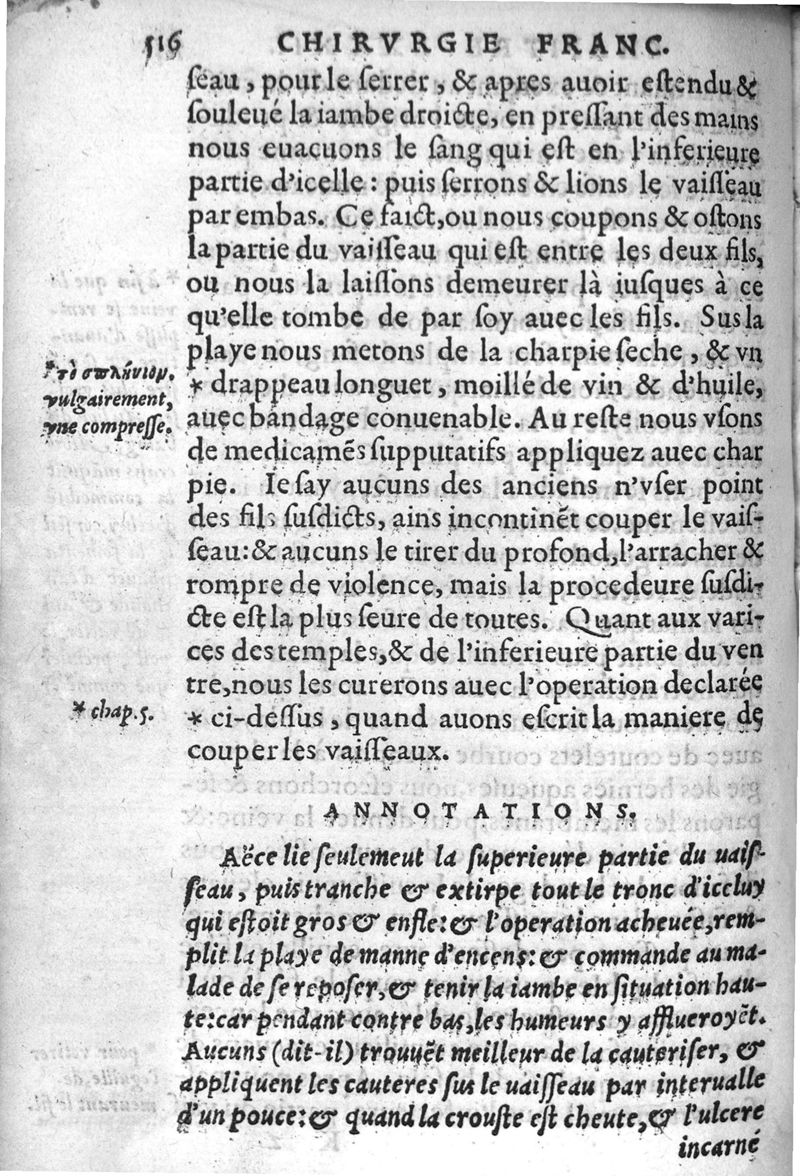 516 CHIRVRGIE FRANC.
ſeau, pour le ſerrer, & apres auoir eſtendu &
ſouleué la iambe droicte, en preſſant des mains
nous euacuons le ſang qui eſt en l'inferieure
partie d'icelle: puis ſerrons & lions le vaiſſeau
par embas. Ce faict, ou nous coupons & oſtons
la partie du vaiſſeau qui eſt entre les deux fils,
ou nous la laiſſons demeurer là iuſques à ce
qu'elle tombe de par ſoy auec les fils. Sus la
playe nous metons de la charpie ſeche, & vn
* drappeau longuet, moillé de vin & d'huile,
auec bandage conuenable. Au reſte nous vſons
de medicamẽs ſupputatifs appliquez auec char
pie. Ie ſay aucuns des anciens n'vſer point
des fils ſuſdicts, ains incontinẽt couper le vaiſ-
ſeau: & aucuns le tirer du profond, l'arracher &
rompre de violence, mais la procedeure ſuſdi-
cte eſt la plus ſeure de toutes. Quant aux vari-
ces des temples, & de l'inferieure partie du ven
tre, nous les curerons auec l'operation declarée
* ci-deſſus, quand auons eſcrit la maniere de
couper les vaiſſeaux.
*τὸ σπλήνιον.
vulgairement,
vne compreſſe.
* chap. 5.
ANNOTATIONS.
Aëce lie ſeulemeut la ſuperieure partie du uaiſ-
ſeau, puis tranche & extirpe tout le tronc d'iceluy
qui eſtoit gros & enfle: & l'operation acheuée, rem-
plit la playe de manne d'encens: & commande au ma-
lade de ſe repoſer, & tenir la iambe en ſituation hau-
te: car pendant contre bas, les humeurs y afflueroyẽt.
Aucuns (dit-il) trouuẽt meilleur de la cauteriſer, &
appliquent les cauteres ſus le uaiſſeau par interualle
d'un pouce: & quand la crouſte eſt cheute, & l'ulcere
incarné